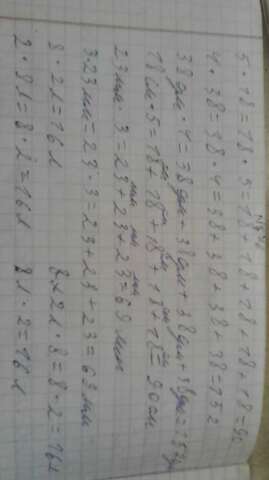 5 · 18 = 18 · 5 = 18 + 18 + 18 + 18 + 18 = 90
4 · 38 = 38 · 4 = 38 + 38 + 38 + 38 = 152
38 дм · 4 = 38 дм + 38 дм + 38 дм + 38 дм = 152 дм
18 см · 5 = 18 см + 18 см + 18 см + 18 см + 18 см = 90 см
23 мм · 3 = 23 мм + 23 мм + 23 мм = 69 мм
3 · 23 мм = 23 · 3 = 23 + 23 + 23 = 69 мм
8 · 2 л = 16 л 8 · 2 = 16 л
2 · 8 л = 8 · 2 = 16 л 8 л · 2 = 16 л